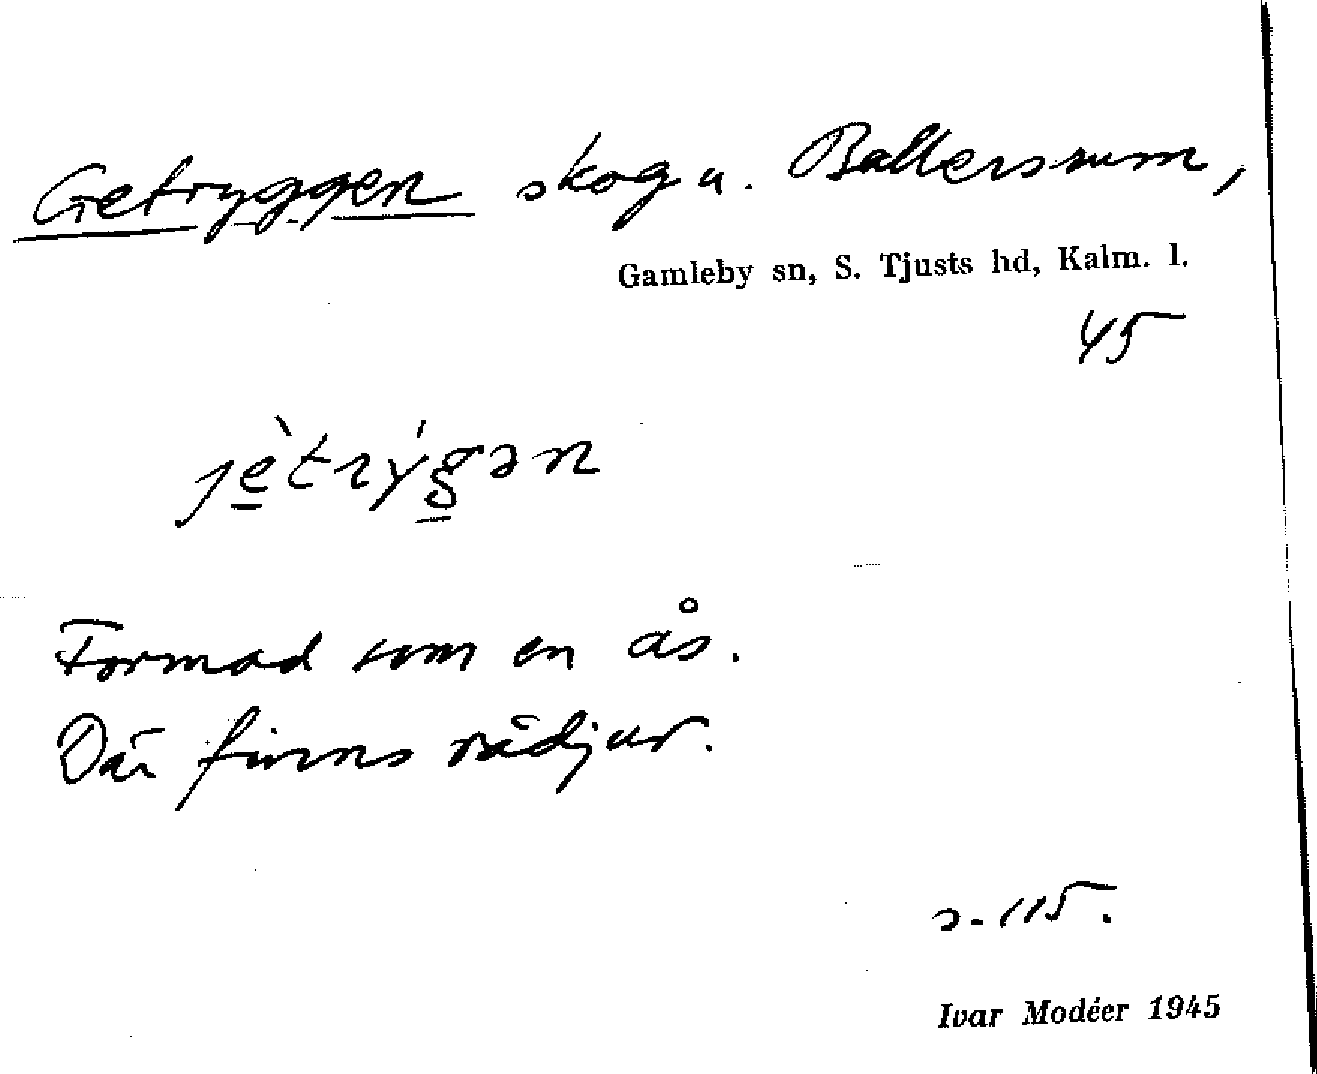 Getryggen skog u. Ballersrum,
Gamleby sn, S. Tjusts hd, Kalm. l.
45
jètrýgən
Formad som en ås.
Där finns rådjur.
s. 115.
Ivar Modéer 1945